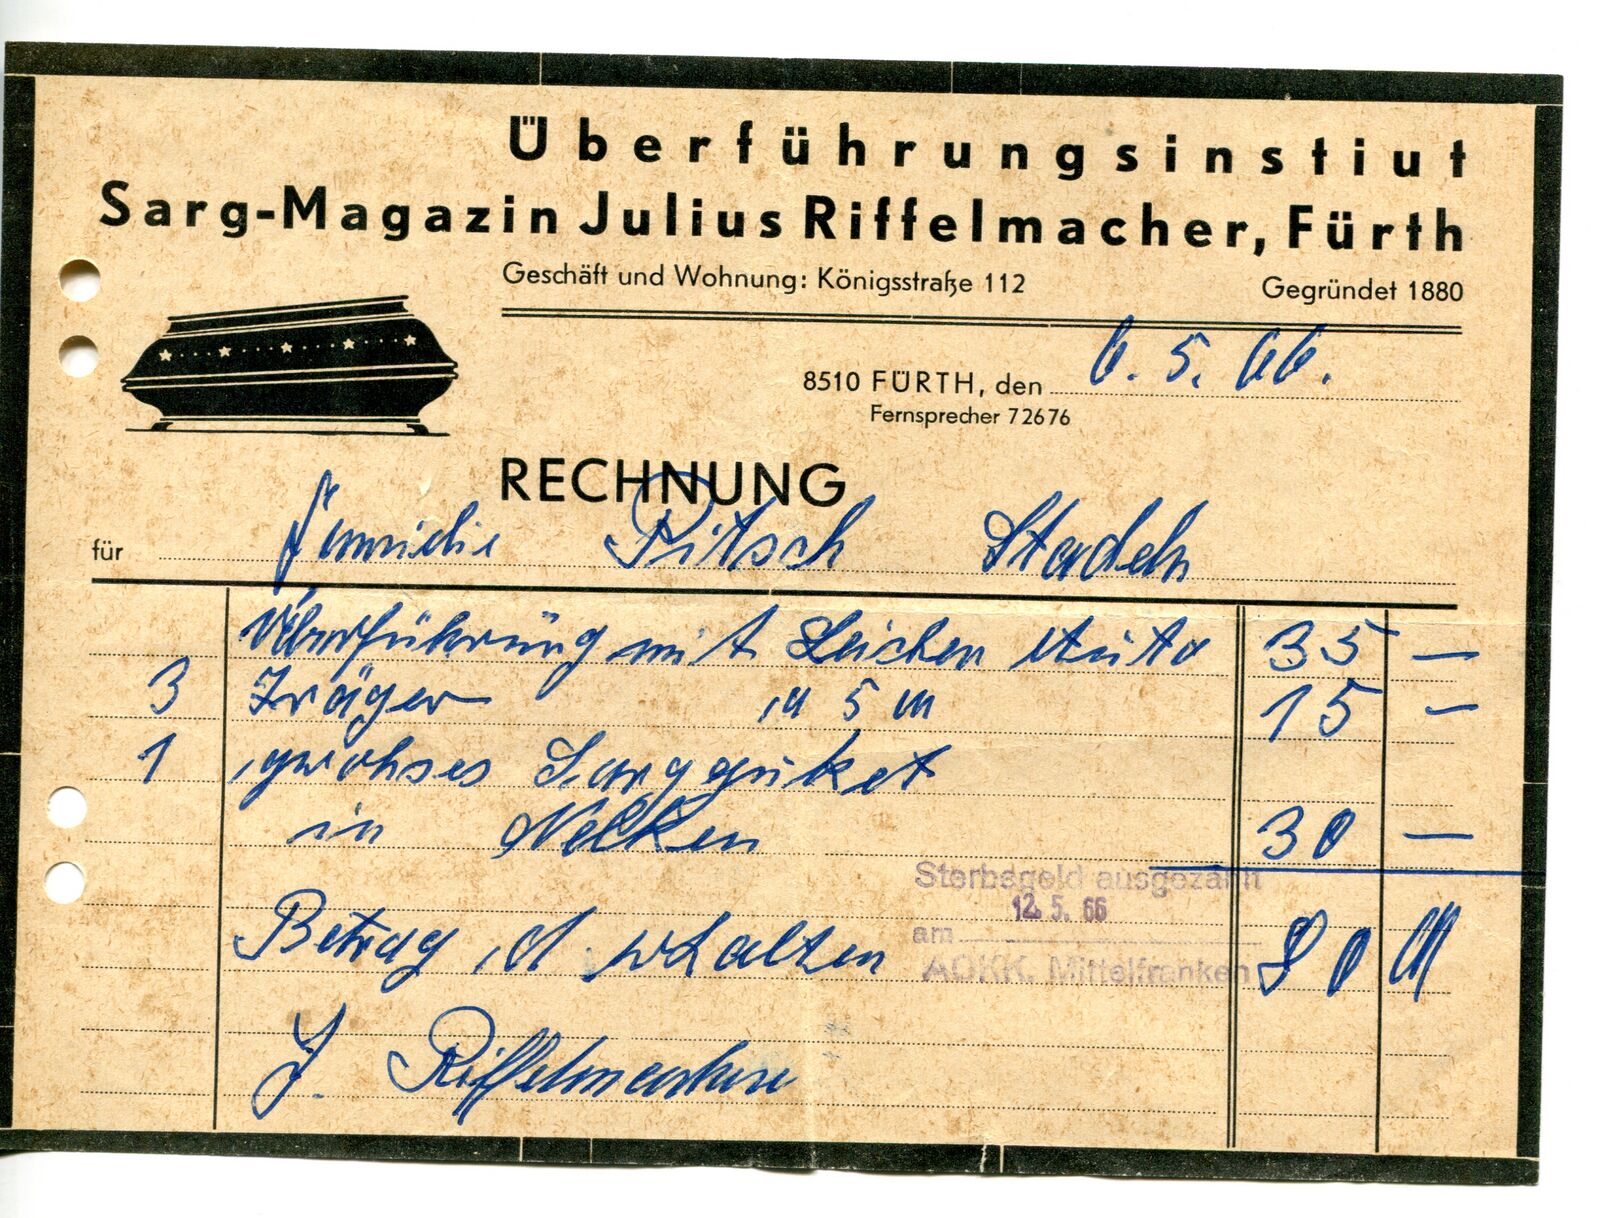 Überführungsinstiut
Sarg-Magazin Julius Riffelmacher, Fürth
Geschäft und Wohnung: Königsstraße 112 Gegründet 1880
8510 FÜRTH, den 6. 5. 66.
Fernsprecher 72676
RECHNUNG
für Familie Pitsch Stadeln
Überführung mit Leichen Auto 35 —
3 Träger a 5 M 15 -
1 großes Sargbuket
in Nelken 30 —
Sterbegeld ausgezahlt
12. 5. 66
am
AOKK. Mittelfranken
Betrag d. erhalten 80 M
J. Riffelmacher